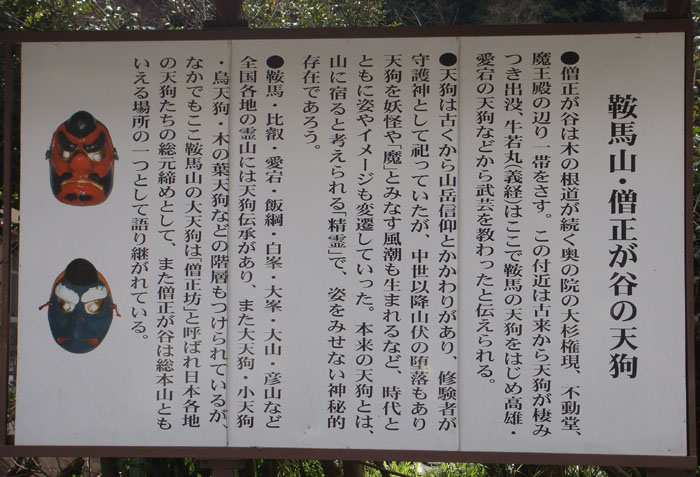 鞍馬山・僧正が谷の天狗
●僧正が谷は木の根道が続く奥の院の大杉権現、不動堂、
魔王殿の辺り一帯をさす。この付近は古来から天狗が棲み
つき出没、牛若丸義経はここで鞍馬の天狗をはじめ高雄・
愛宕の天狗などから武芸を教わったと伝えられる。
●天狗は古くから山岳信仰とかかわりがあり、修験者が
守護神として祀っていたが、中世以降山伏の堕落もあり
天狗を妖怪や「魔」とみなす風潮も生まれるなど、時代と
ともに姿やイメージも変遷していった。本来の天狗とは、
山に宿ると考えられる「精霊」で、姿をみせない神秘的
存在であろう。
●鞍馬・比叡・愛宕・飯綱・白峯・大峯・大山・彦山など
全国各地の霊山には天狗伝承があり、また大天狗・小天狗
・烏天狗・木の葉天狗などの階層もつけられているが
なかでもここ鞍馬山の大天狗は「僧正坊」と呼ばれ日本各地
の天狗たちの総元締めとして、また僧正が谷は総本山とも
いえる場所の一つとして語り継がれている。